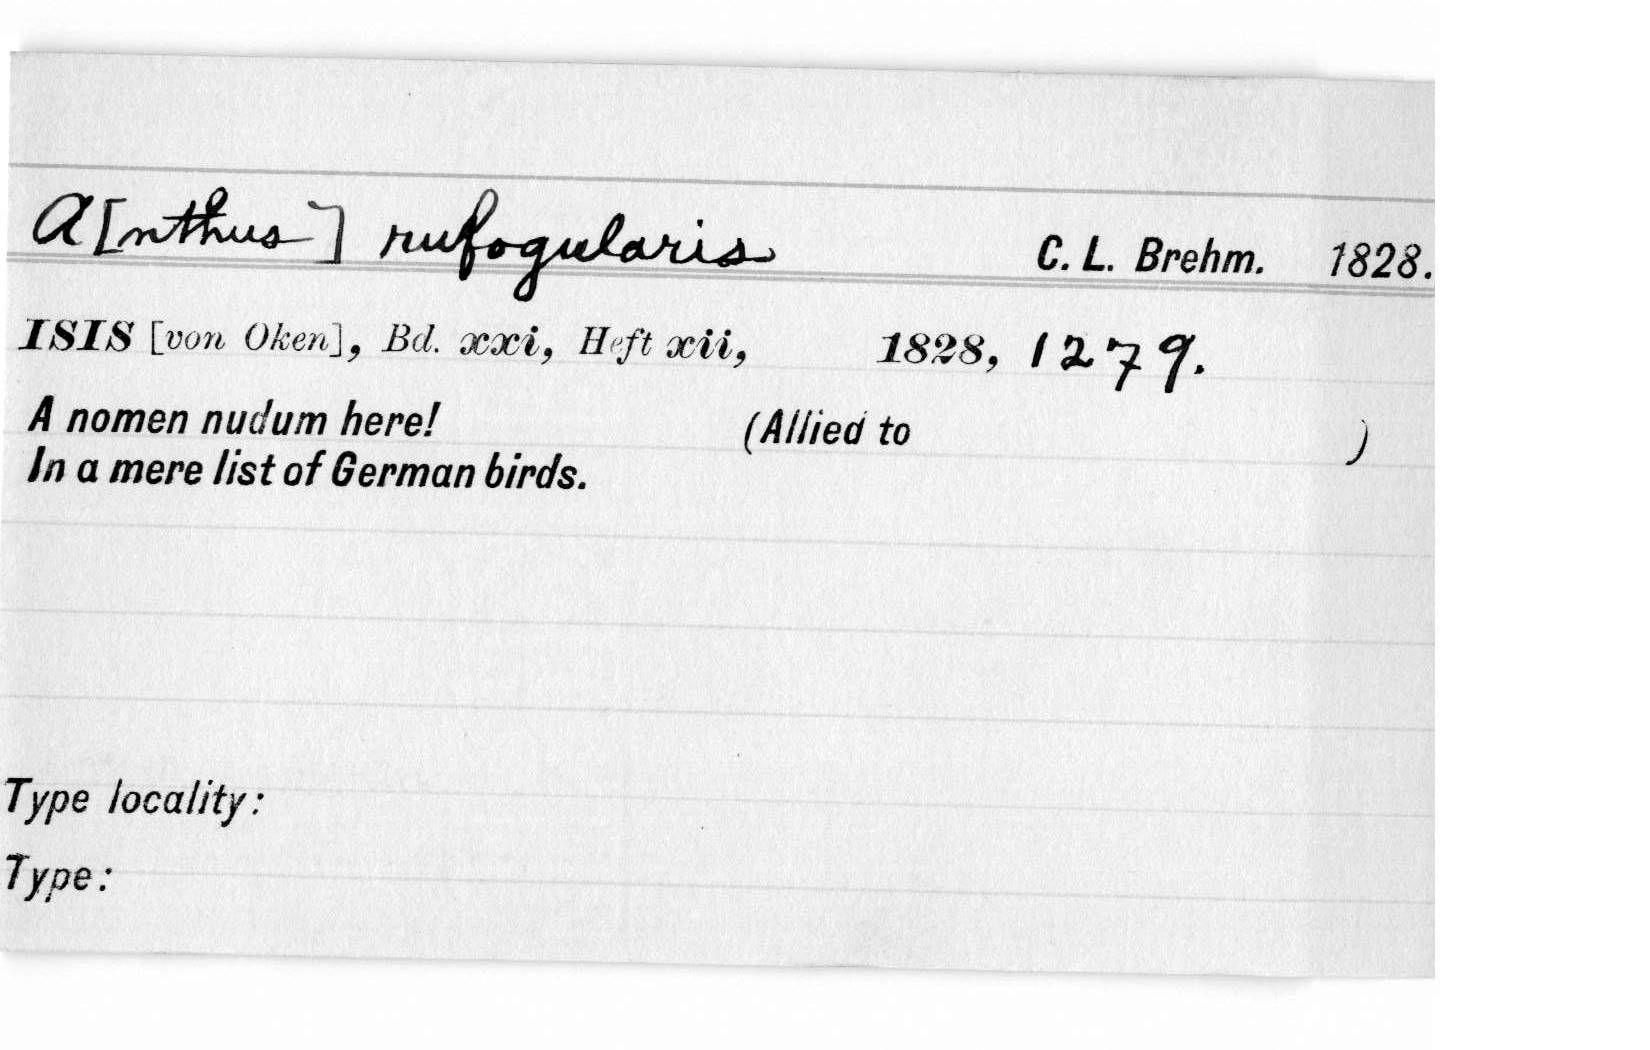 A[nthus] rufogularis C. L. Brehm. 1828.
ISIS [von Oken], Bd. xxi, Heft xii, 1828, 1279.
A nomen nudum here! (Allied to )
In a mere list of German birds.
Type locality:
Type: